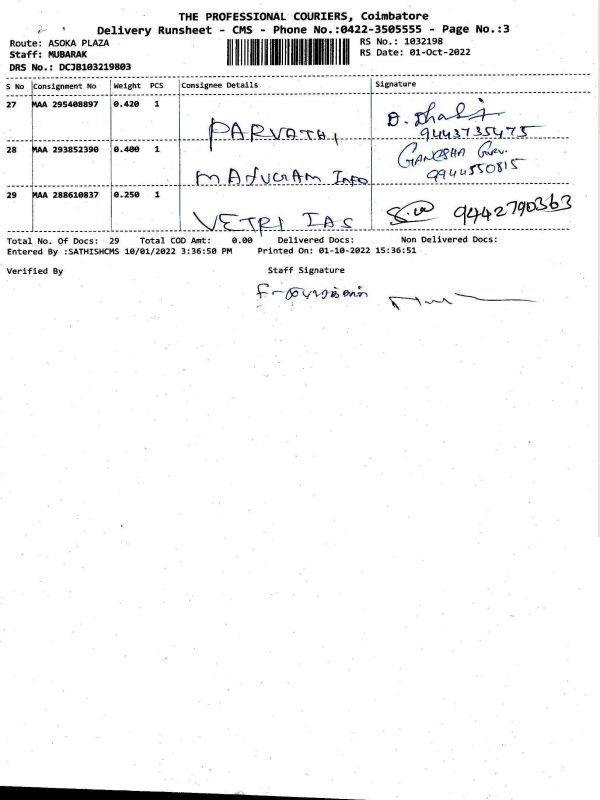 THE PROFESSIONAL COURIERS, Coimbatore
Delivery Runsheet - CMS - Phone No.:0422-3505555 - Page No.:3
Route: ASOKA PLAZA
Staff: MUBARAK
DRS No.: DCJB103219803
RS No.: 1032198
RS Date: 01-Oct-2022
S No Consignment No Weight PCS Consignee Details Signature
27 MAA 295408897 0.420 1 PARVATHI
9443735475
28 MAA 293852390 0.400 1 MADVGRAM INFO GANESHA
9944550815
29 MAA 288610837 0.250 1 VETRI IAS 9442790363
Total No. Of Docs: 29 Total COD Amt: 0.00 Delivered Docs: Non Delivered Docs:
Entered By :SATHISHCMS 10/01/2022 3:36:50 PM Printed On: 01-10-2022 15:36:51
Verified By Staff Signature